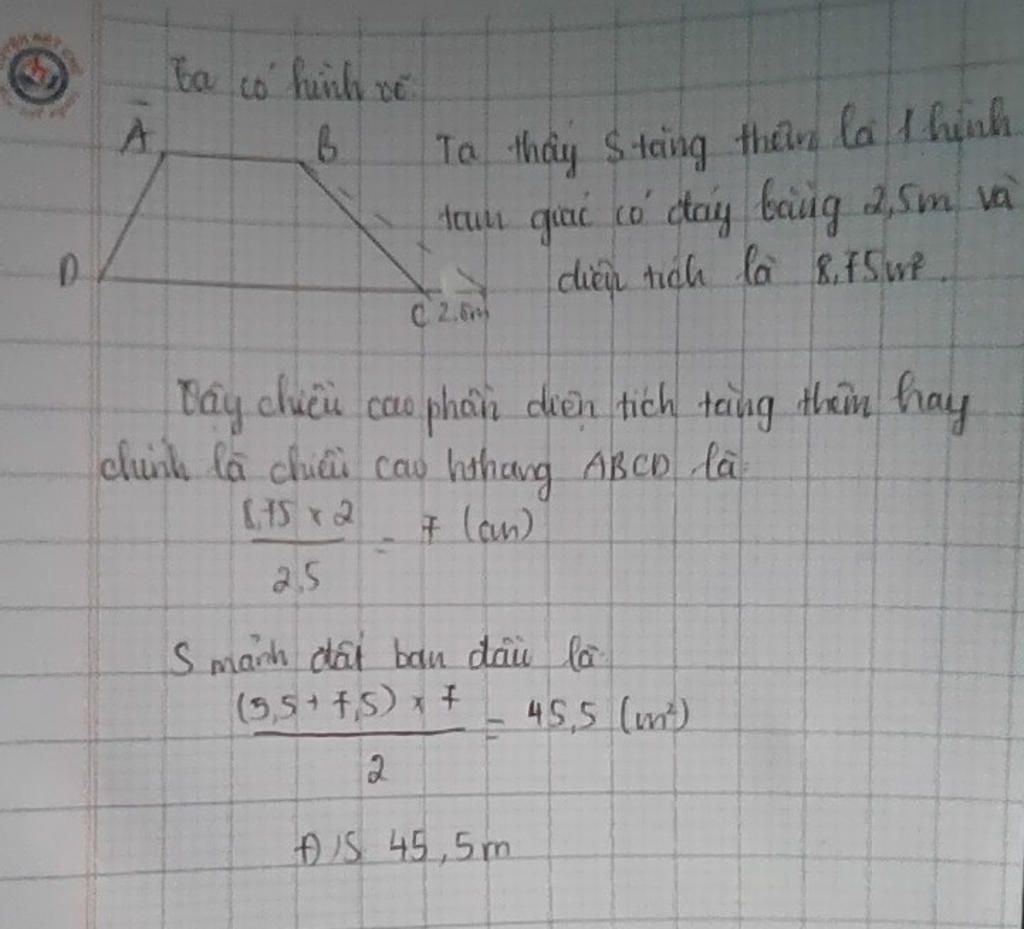 Ta có hình vẽ:
A
B
Ta thấy S tăng thêm là 1 hình
tam giác có đáy bằng 2,5m và
D
diện tích là 8,75m².
C 2,5m
Vậy chiều cao phần diện tích tăng thêm hay
chính là chiều cao hthang ABCD là
8,75 x 2
= 7 (cm)
2,5
S mảnh đất ban đầu là
(5,5 + 7,5) x 7
= 45,5 (m²)
2
Đ/S 45,5m